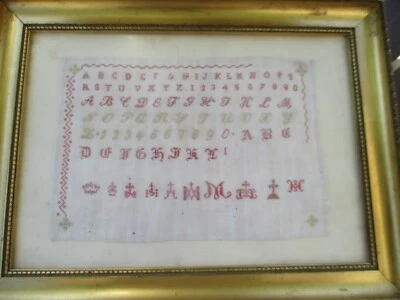 A B C D E F G H I J K L M N O P Q
R S T U V X Y Z . 1 2 3 4 5 6 7 8 9 0
A B C D E F G H I K L M
N O P Q R S T U V X Y
Z · 1 2 3 4 5 6 7 8 9 0 · A B C
D E F G H I K L I
M